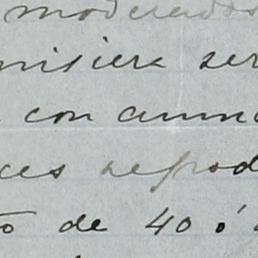 moderados
nisiera ser
con anun
ces reprod
to de 40 ó